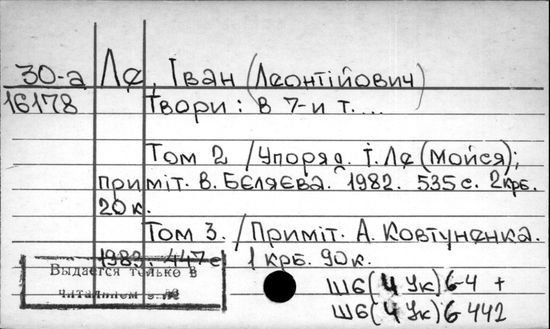 30-а Ле, Іван (Леонтійович)
16178 Твори: в 7-и т....
Том 2 / Упоряд. І. Ле (Мойся);
приміт. В. Бєляєва. 1982. 535 с. 2крб.
20 к.
Том 3. / Приміт. А. Ковтуненка.
1983. 447 с 1 крб. 90 к.
Выдается только в
читальном з.
Ш6(4Ук)6-4 +
Ш6(4Ук)6 442